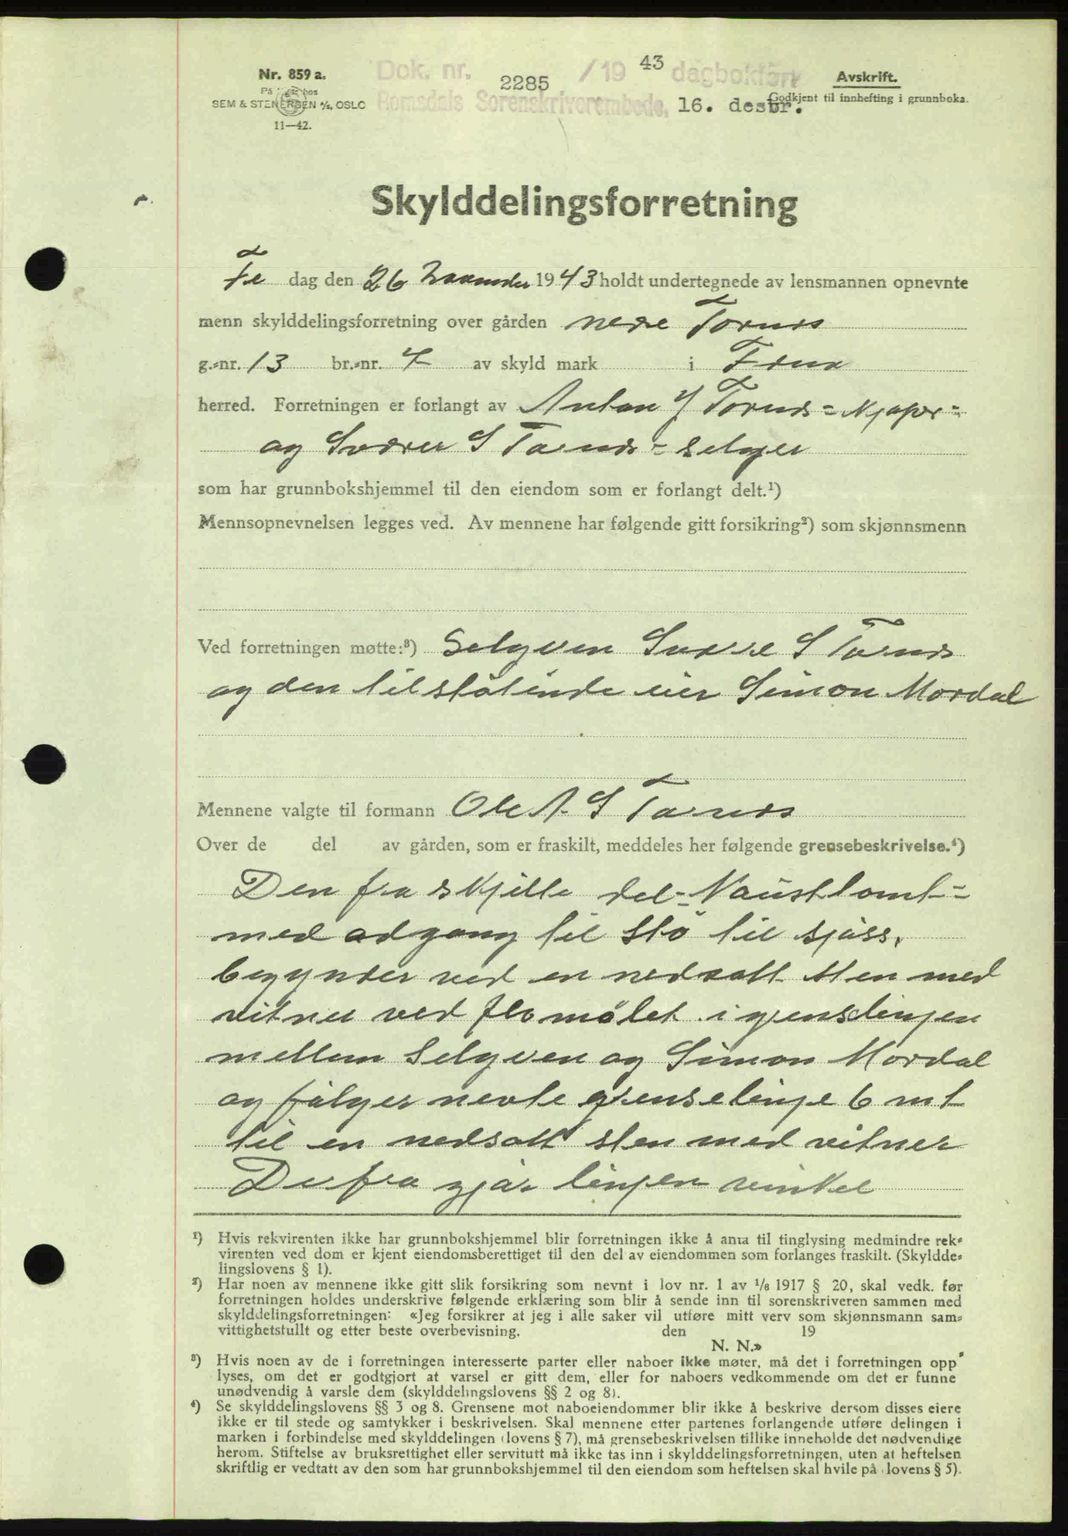 Nr. 859 a.
SEM & STENERSEN A/S, OSLO
11—42.
Dok. nr. 2285 /19 43 dagbokført
Romsdals Sorenskriverembede, 16. desbr.
Avskrift.
Godkjent til innhefting i grunnboka.
Skylddelingsforretning
Fre dag den 26 november 1943 holdt undertegnede av lensmannen opnevnte
menn skylddelingsforretning over gården nedre Tornes
g.-nr. 13 br.-nr. 4 av skyld mark i Fræna
herred. Forretningen er forlangt av Anton J Tornes = Kjøper =
og Sverre S Tornes = selger
som har grunnbokshjemmel til den eiendom som er forlangt delt.¹)
Mennsopnevnelsen legges ved. Av mennene har følgende gitt forsikring²) som skjønnsmenn
Ved forretningen møtte:³) Selgeren Sverre S Tornes
og den tilstøtende eier Simon Mordal
Mennene valgte til formann Ole A. S Tornes
Over de del av gården, som er fraskilt, meddeles her følgende grensebeskrivelse.⁴)
Den fra skjilte del = Nausttomt =
med adgang til stø til sjøss.
begynder ved en nedsatt sten med
vitner ved flomålet i grenselinjen
mellem Selgeren og Simon Mordal
og følger nevte grenselinje 6 mt
til en nedsatt sten med vitner
Derfra gjør linjen vinkel
¹) Hvis rekvirenten ikke har grunnbokshjemmel blir forretningen ikke å anta til tinglysing medmindre rek-
virenten ved dom er kjent eiendomsberettiget til den del av eiendommen som forlanges fraskilt. (Skyldde-
lingslovens § 1).
²) Har noen av mennene ikke gitt slik forsikring som nevnt i lov nr. 1 av 1/6 1917 § 20, skal vedk. før
forretningen holdes underskrive følgende erklæring som blir å sende inn til sorenskriveren sammen med
skylddelingsforretningen: «Jeg forsikrer at jeg i alle saker vil utføre mitt verv som skjønnsmann sam-
vittighetsfullt og etter beste overbevisning. den 19
N. N.»
³) Hvis noen av de i forretningen interesserte parter eller naboer ikke møter, må det i forretningen opp-
lyses, om det er godtgjort at varsel er gitt dem, eller for naboers vedkommende om det er funnet
unødvendig å varsle dem (skylddelingslovens §§ 2 og 8).
⁴) Se skylddelingslovens §§ 3 og 8. Grensene mot naboeiendommer blir ikke å beskrive dersom disses eiere
ikke er til stede og samtykker i beskrivelsen. Skal mennene etter partenes forlangende utføre delingen i
marken i forbindelse med skylddelingen (lovens § 7), må grensebeskrivelsen tillike inneholde det nødvendige
herom. Stiftelse av bruksrettighet eller servitutt må ikke tas inn i skylddelingsforretningen, uten at heftelsen
skriftlig er vedtatt av den som har grunnbokshjemmel til den eiendom som heftelsen skal hvile på (lovens § 5).